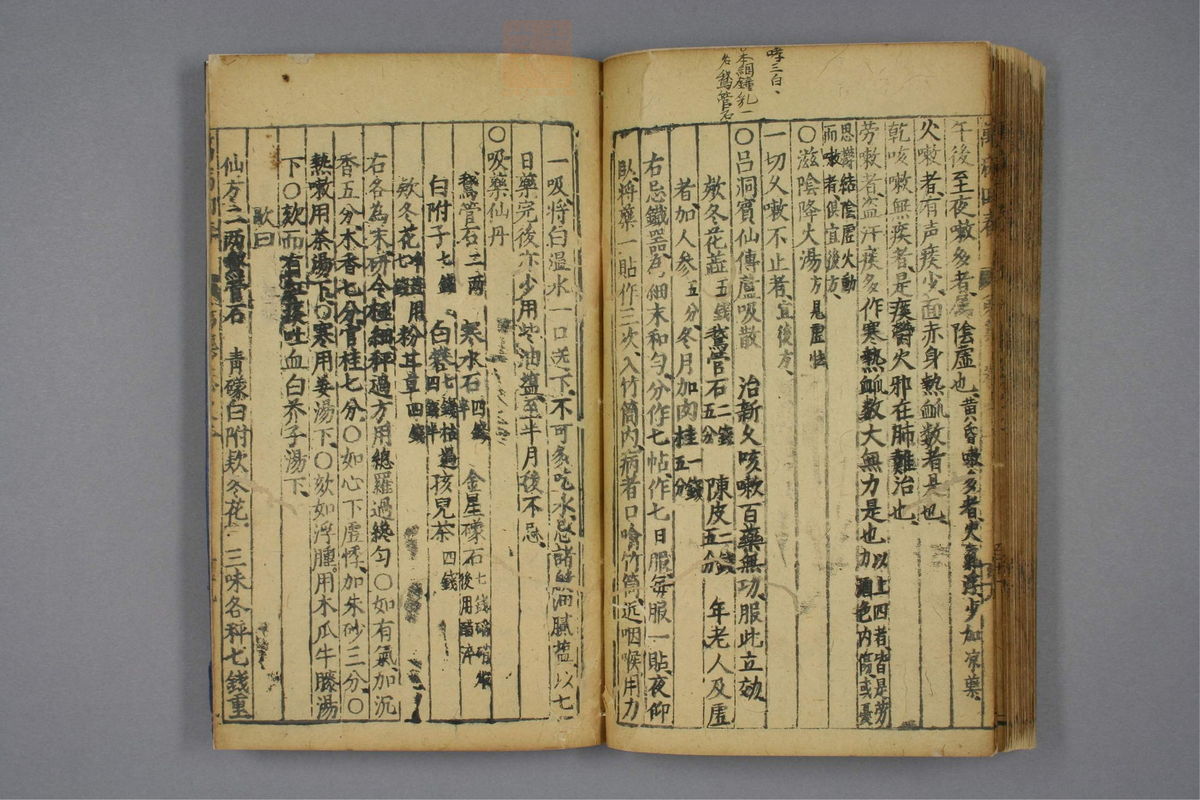 哮三白、
本綱鐘乳一
名鵞管石
午後至夜嗽多者屬陰虛也黃昏嗽多者火氣浮少加涼藥
火嗽者有声痰少面赤身熱脉数者是也
乾咳嗽無痰者是痰欝火邪在肺難治也
勞嗽者盜汗痰多作寒熱脉数大無力是也 以上四者皆是勞力酒色內傷或憂
思欝結陰虛火動而嗽者俱宜後方
○滋陰降火湯 方見虛勞
一切久嗽不止者宜後方
○呂洞賓仙傳蘆吸散 治新久咳嗽百藥無功服此立効
欬冬花蕋 五錢 鵞管石 二錢五分 陳皮 二錢五分 年老人及虛
者加人參 五分 冬月加肉桂 一錢五分
右忌鐵器為細末和勻分作七帖作七日服每服一貼夜仰
臥將藥一貼作三次入竹筒內病者口噙竹筒近咽喉用力
一吸將白溫水一口送下不可多吃水忌諸般油膩塩以七
日藥完後亦少用些油塩至半月後不忌
○吸藥仙丹
鵞管石 二兩 寒水石 四錢半 金星礞石 七錢硝
白附子 七錢 白礬 七錢枯過四錢半 孩兒茶 四錢
欬冬花 七錢 粉甘草 四錢
右各為末研令極細秤過方用總羅過終勻○如有氣加沉
香五分木香七分官桂七分○如心下虛悸加朱砂三分○
熱嗽用茶湯下○寒用姜湯下○欬如浮腫用木瓜牛膝湯
下○欬而有紅痰吐血白芥子湯下
歌曰
仙方二兩鵞管石 青礞白附欵冬花 三味各秤七錢重